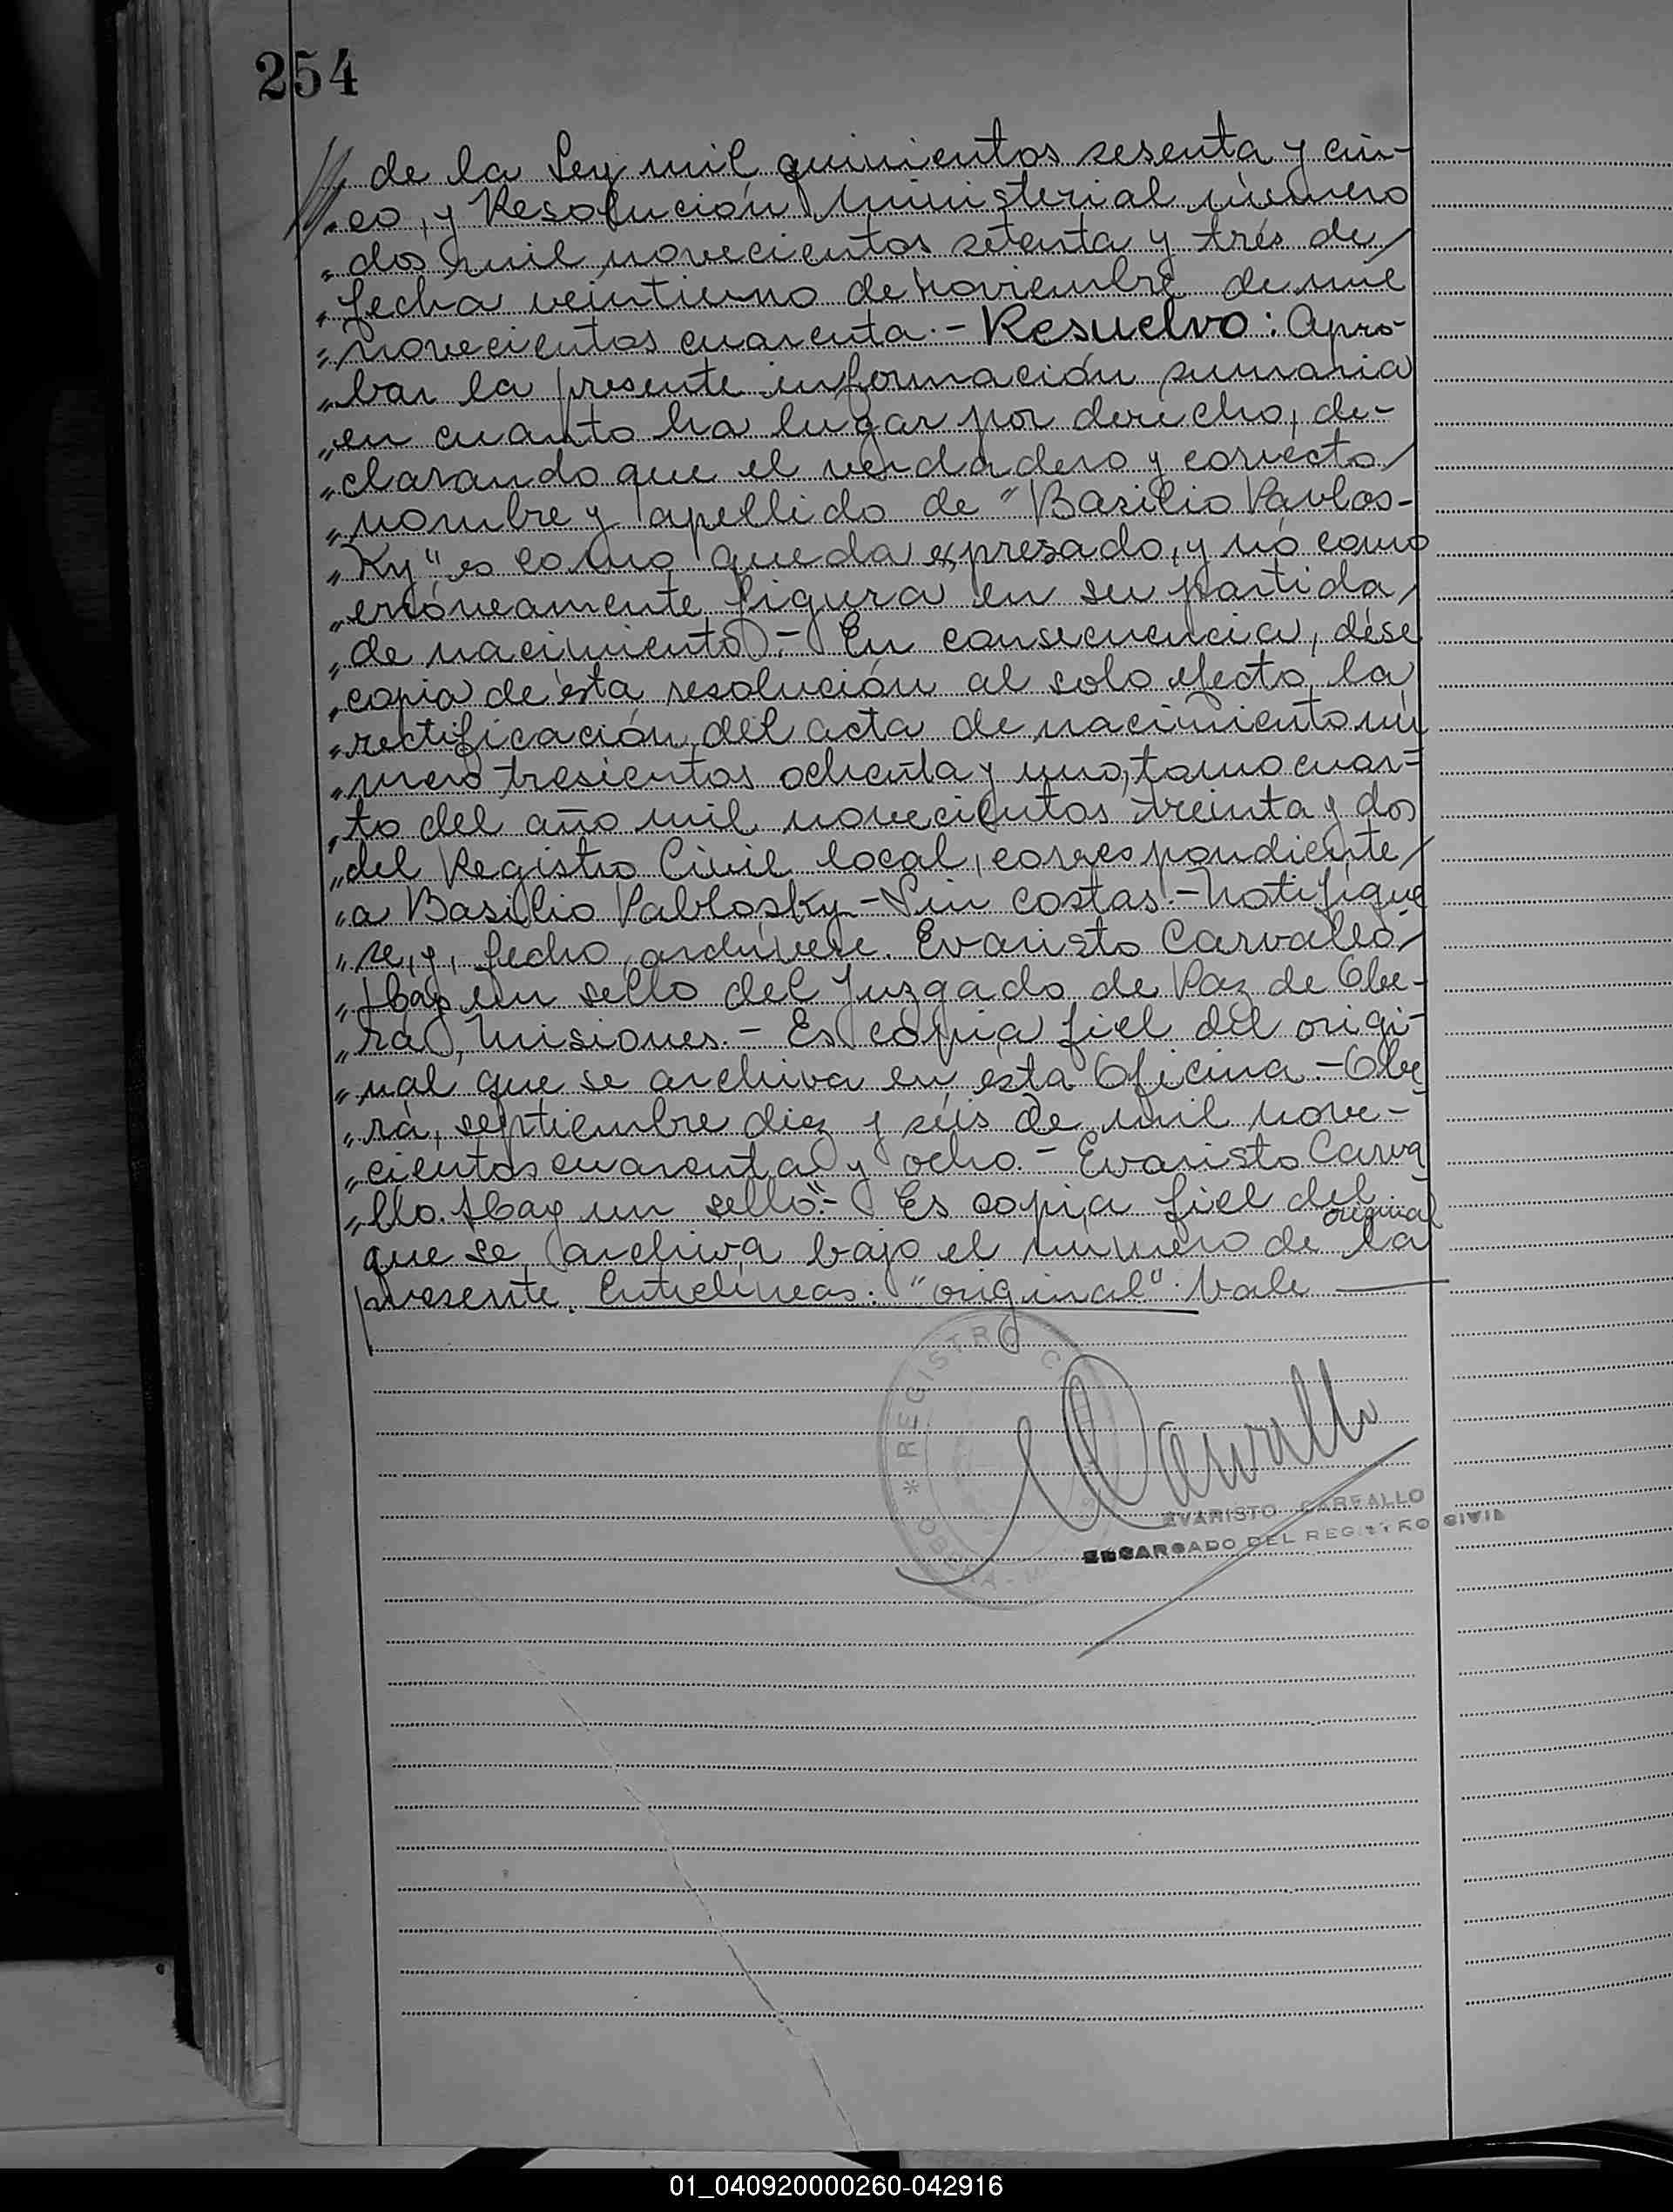 254
// de la Ley mil quinientos sesenta y cin-
„ co, y Resolución Ministerial número
„ dos mil novecientos setenta y trés de/
„ fecha veintiuno de noviembre de mil
„ novecientos cuarenta.- Resuelvo: Apro-
„ bar la presente información sumaria
„ en cuanto ha lugar por derecho, de-
„ clarando que el verdadero y correcto/
„ nombre y apellido de "Basilio Pavlos-
„ Ky" es como queda expresado, y nó como
„ erróneamente figura en su partida/
„ de nacimiento.- En consecuencia, dése
„ copia de ésta resolución al solo efecto la
„ rectificación del acta de nacimiento nú
„ mero tresientos ochenta y uno, tomo cuar-
„ to del año mil novecientos treinta y dos
„ del Registro Civil local, correspondiente/
„ a Basilio Pablosky.- Sin costas.- Notifíque
„ se, y, fecho, archívese. Evaristo Carvallo/
„ Hay un sello del Juzgado de Paz de Obe-
„ rá, Misiones.- Es copia fiel del origi-
„ nal que se archiva en ésta Oficina.- Obe
„ rá, septiembre diez y séis de mil nove-
„ cientos cuarenta y ocho.- Evaristo Carva
„ llo. Hay un sello".- Es copia fiel del
original
que se archiva bajo el número de la
presente. Entrelíneas: "original". Vale
REGISTRO
Carvallo
EVARISTO CARVALLO
ENCARGADO DEL REGISTRO CIVIL
01_040920000260-042916